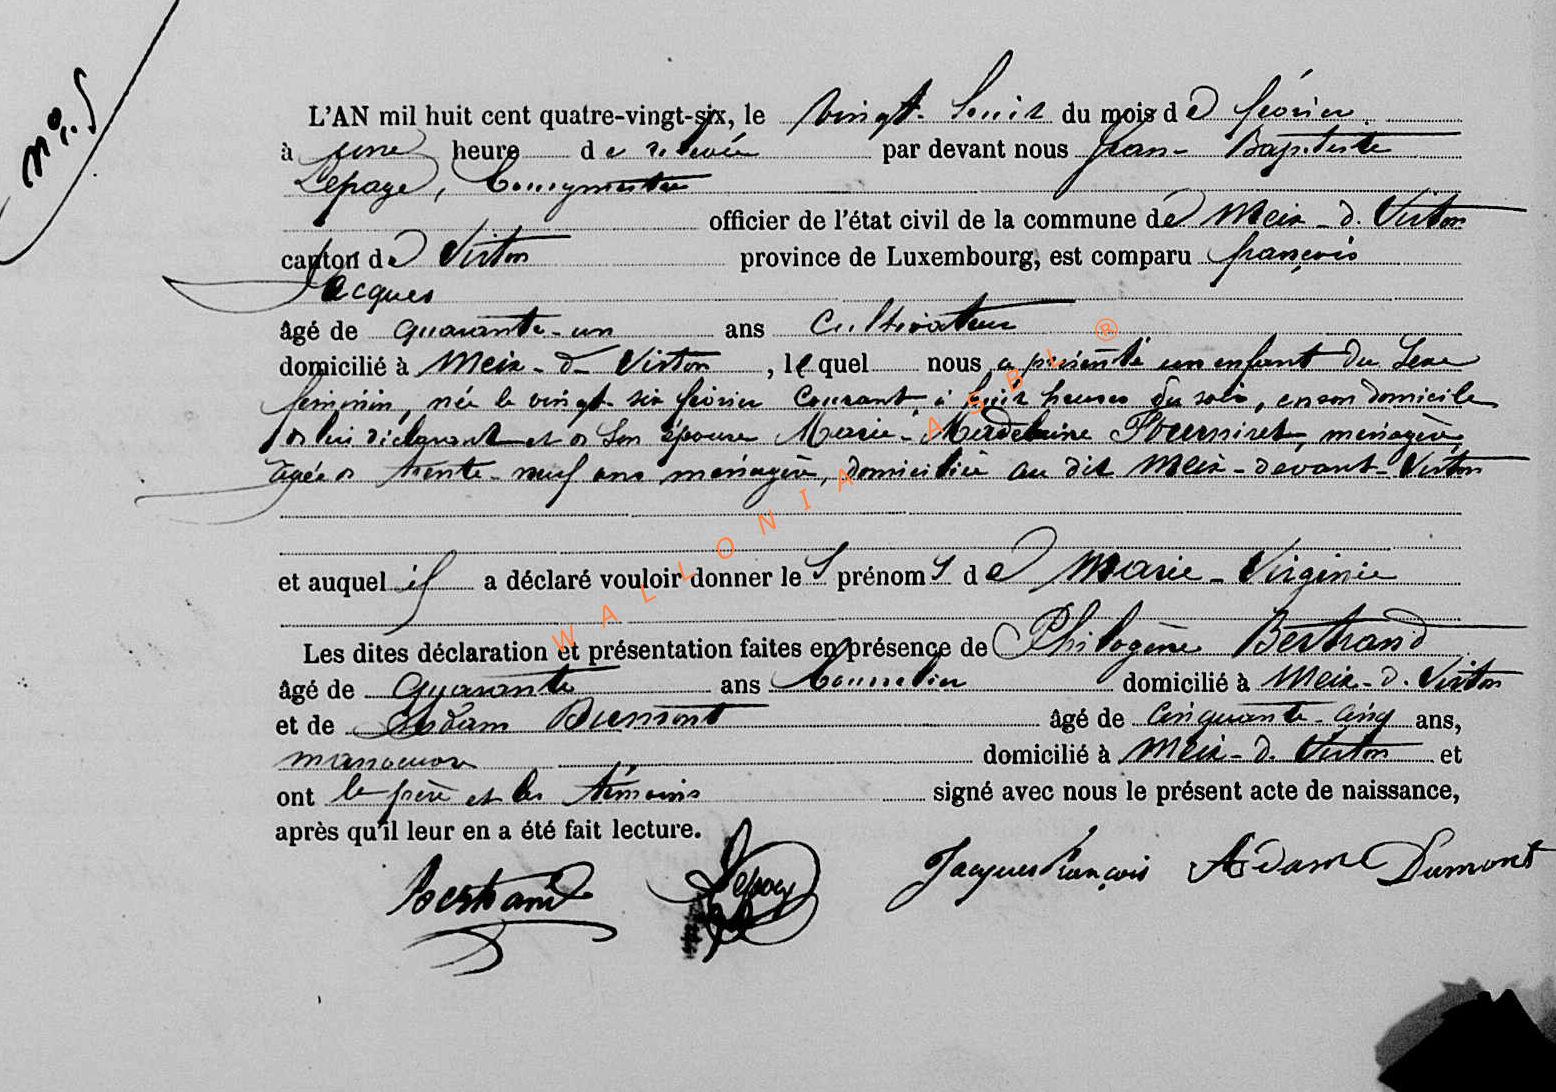 n° 5
L'AN mil huit cent quatre-vingt-six, le vingt-huit du mois de février
à une heure de relevée par devant nous Jean-Baptiste
Lepage, bourgmestre
officier de l'état civil de la commune de Meix-d. Virton
canton de Virton province de Luxembourg, est comparu françois
Jacques
âgé de quarante-un ans cultivateur
domicilié à Meix-d-Virton, lequel nous a présenté un enfant du sexe
féminin, née le vingt-six février courant, à huit heures du soir, en son domicile
de lui déclarant et de son épouse Marie-Madeleine Fourniret, ménagère,
agée de trente-neuf ans ménagère, domiciliée au dit Meix-devant-Virton
et auquel il a déclaré vouloir donner les prénoms de Marie-Virginie
Les dites déclaration et présentation faites en présence de Philogène Bertrand
âgé de quarante ans domicilié à Meix-d. Virton
et de Adam Dumont âgé de cinquante-cinq ans,
manoeuvre domicilié à Meix-d. Virton et
ont le père et les témoins signé avec nous le présent acte de naissance,
après qu'il leur en a été fait lecture.
Bertrand Lepage Jacques François Adam Dumont
WALLONIA ASBL ®